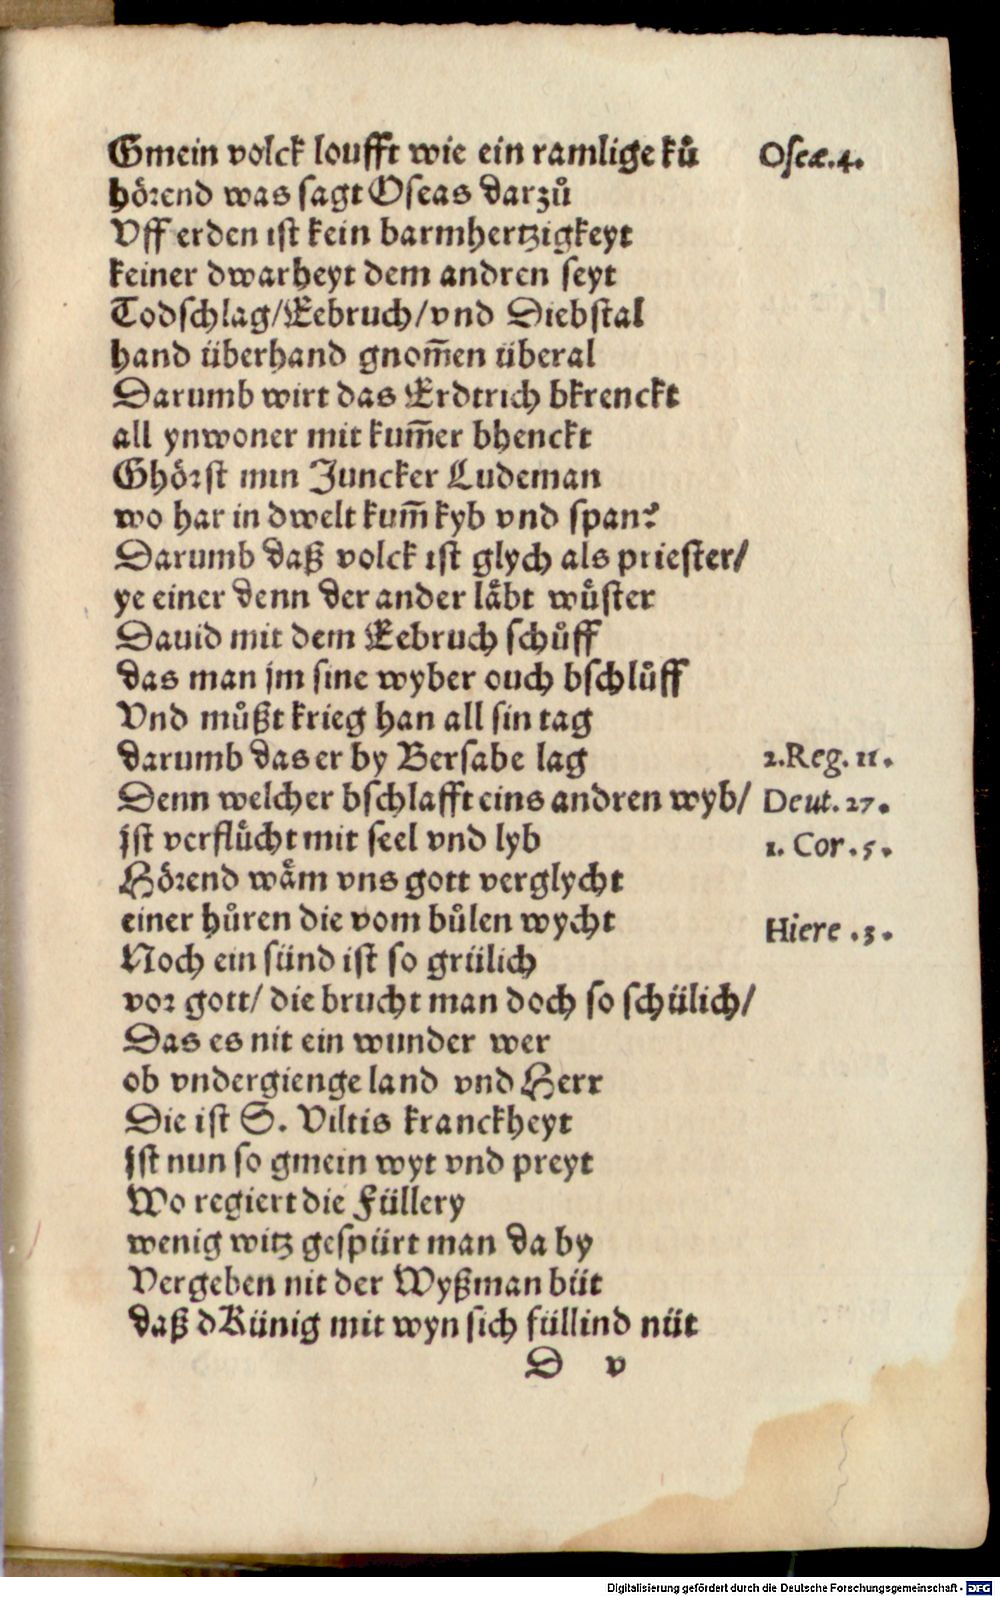 Gmein volck loufft wie ein ramlige kuͦ Oseæ.4.
hoͤrend was sagt Oseas darzuͦ
Vff erden ist kein barmhertzigkeyt
keiner dwarheyt dem andren seyt
Todschlag/Eebruch/vnd Diebstal
hand überhand gnom̃en überal
Darumb wirt das Erdtrich bkrenckt
all ynwoner mit kum̃er bhenckt
Ghoͤrst nun Juncker Ludeman
wo har in dwelt kum̃ kyb vnd span?
Darumb daß volck ist glych als priester/
ye einer denn der ander laͤbt wuͤster
Dauid mit dem Eebruch schuͦff
das man jm sine wyber ouch bschluͦff
Vnd muͦßt krieg han all sin tag
darumb das er by Bersabe lag 2.Reg.11.
Denn welcher bschlafft eins andren wyb/ Deut.27.
jst verfluͦcht mit seel vnd lyb 1. Cor.5.
Hoͤrend waͤm vns gott verglycht
einer huͦren die vom buͦlen wycht Hiere.3.
Noch ein sünd ist so grülich
vor gott/ die brucht man doch so schülich/
Das es nit ein wunder wer
ob vndergienge land vnd Herr
Die ist S. Viltis kranckheyt
jst nun so gmein wyt vnd preyt
Wo regiert die Füllery
wenig witz gespürt man da by
Vergeben nit der Wyßman büt
daß dKünig mit wyn sich füllind nüt
D v
Digitalisierung gefördert durch die Deutsche Forschungsgemeinschaft - DFG